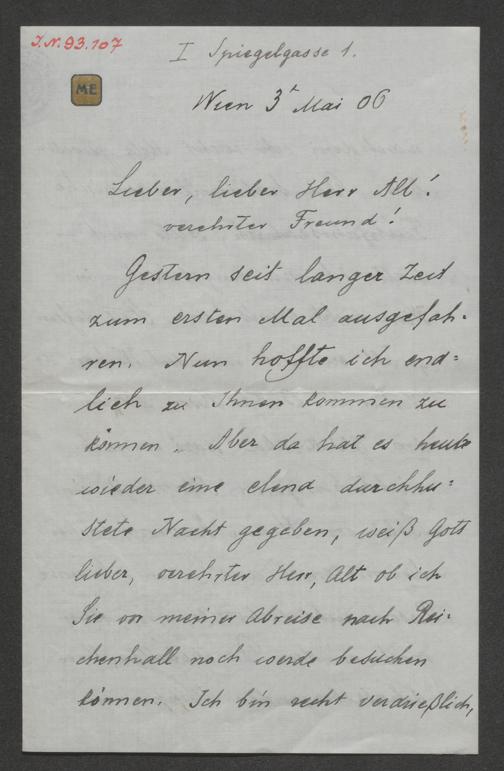 J.N. 93.107
I Spiegelgasse 1.
ME
Wien 3t Mai 06
Lieber, lieber Herr Alt!
verehrter Freund!
Gestern seit langer Zeit
zum ersten Mal ausgefah-
ren. Nun hoffte ich end=
lich zu Ihnen kommen zu
können. Aber da hat es heute
wieder eine elend durchhu=
stete Nacht gegeben, weiß Gott
lieber, verehrter Herr, Alt ob ich
Sie vor meiner Abreise nach Rei=
chenhall noch werde besuchen
können. Ich bin recht verdrießlich,